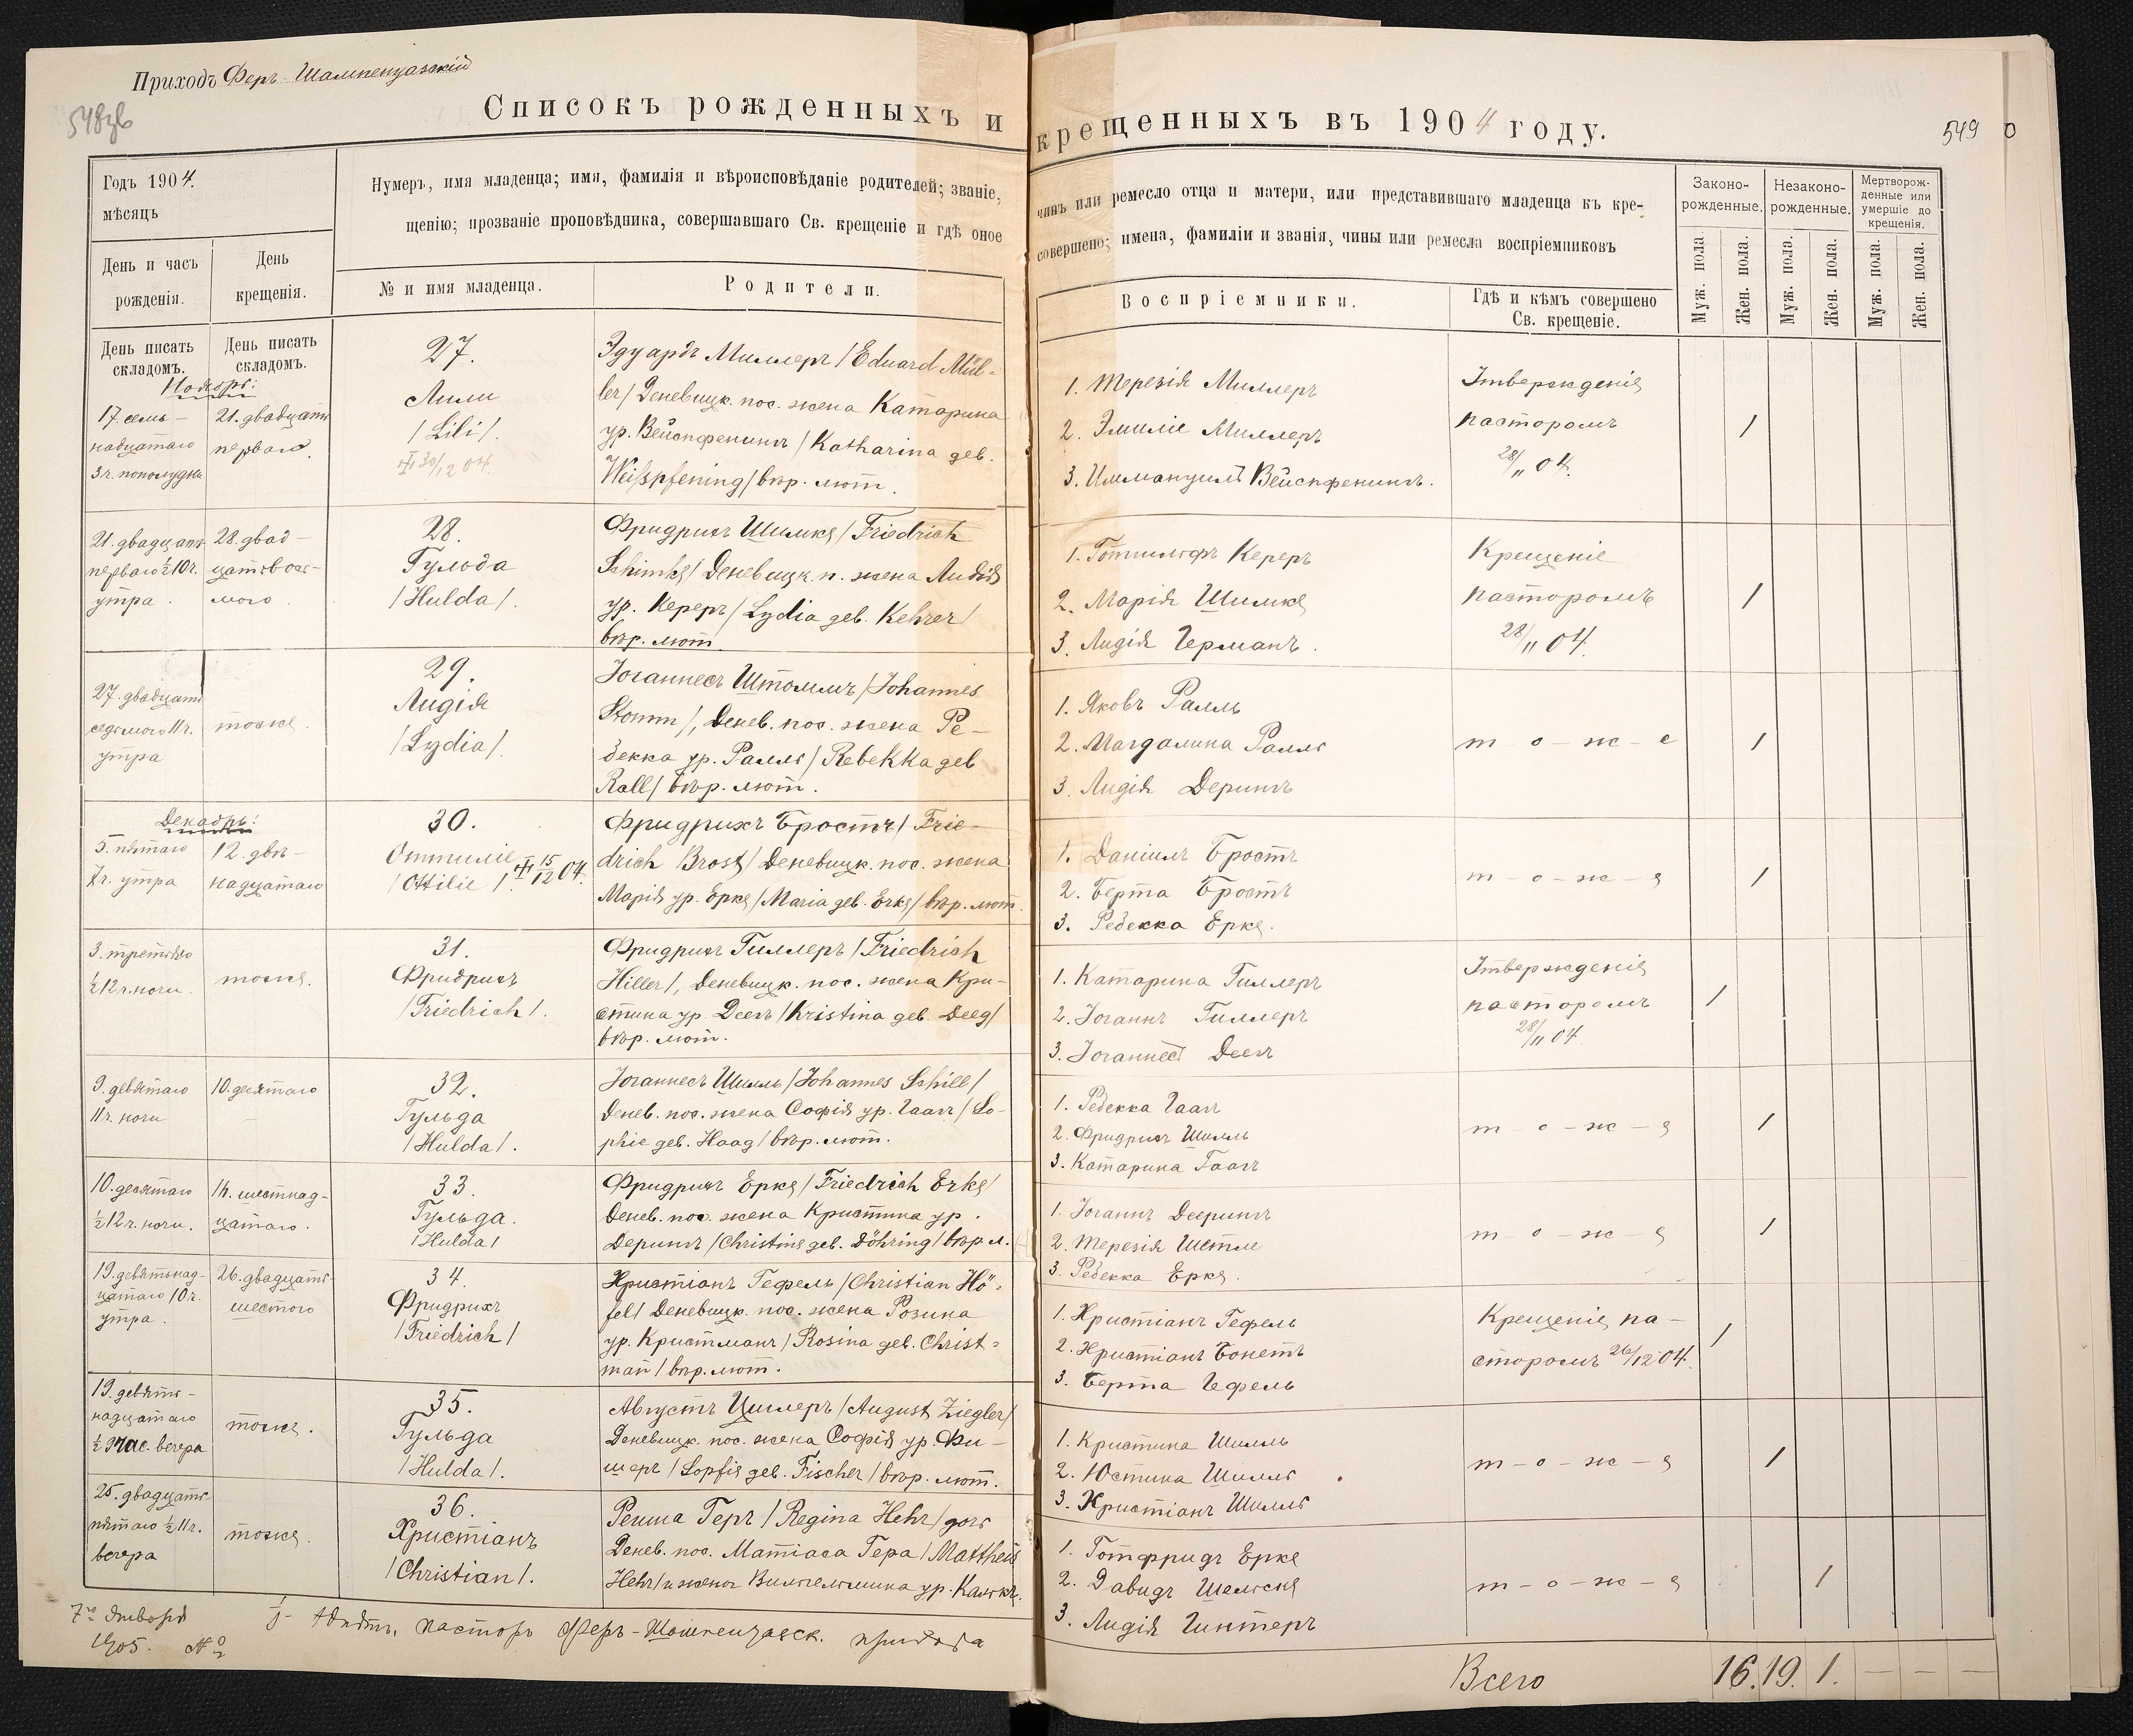 Приходъ Феръ-Шампенуазскій
548об
Списокъ рожденныхъ и крещенныхъ въ 1904 году.
549
Годъ 1904.
мѣсяцъ
День и часъ
рожденія.
День
крещенія.
Нумеръ, имя младенца; имя, фамилія и вѣроисповѣданіе родителей; званіе, чинъ или ремесло отца и матери, или представившаго младенца къ кре-
щенію; прозваніе проповѣдника, совершавшаго Св. крещеніе и гдѣ оное совершено; имена, фамиліи и званія, чины или ремесла воспріемниковъ
№ и имя младенца.
Родители.
Воспріемники.
Гдѣ и кѣмъ совершено
Св. крещеніе.
Законо-
рожденные.
Незаконо-
рожденные.
Мертворож-
денные или
умершіе до
крещенія.
Муж. пола.
Жен. пола.
Муж. пола.
Жен. пола.
Муж. пола.
Жен. пола.
День писать
складомъ.
День писать
складомъ.
Ноябрь:
17. семь-
надцатаго
3 ч. пополудни
21. двадцать
перваго.
27.
Лили
/Lili/.
30/12 04.
Эдуардъ Миллеръ /Eduard Mül-
ler/ Деневицк. пос. жена Катарина
ур. Вейспфенингъ /Katharina geb.
Weisspfening/ вѣр. лют.
1. Терезія Миллеръ
2. Эмиліе Миллеръ
3. Иммануилъ Вейспфенингъ.
Утвержденіе
пасторомъ
28/11 04.
1
21. двадцать
перваго ½10 ч.
утра.
28. двад-
цать вось-
мого
28.
Гульда
/Hulda/.
Фридрихъ Шимке /Friedrich
Schimke/ Деневицк. п. жена Лидія
ур. Кереръ /Lydia geb. Kehrer/
вѣр. лют.
1. Готлибъ Кереръ
2. Марія Шимке
3. Лидія Германъ.
Крещеніе
пасторомъ
28/11 04.
1
27. двадцать
седьмого 11 ч.
утра
тоже.
29.
Лидія
/Lydia/.
Іоганнесъ Штоммъ /Johannes
Stomm/, Денев. пос. жена Ре-
бекка ур. Ралль /Rebekka geb
Rall/ вѣр. лют.
1. Яковъ Ралль
2. Магдалина Ралль
3. Лидія Дерингъ
т-о-ж-е
1
Декабрь:
5. пятаго
7 ч. утра
12. двѣ-
надцатаго
30.
Оттиліе
/Ottilie/. 15/12 04.
Фридрихъ Бростъ /Frie-
drich Brost/ Деневицк. пос. жена
Марія ур. Ерке /Maria geb. Erke/ вѣр. лют.
1. Даніилъ Бростъ
2. Берта Бростъ
3. Ребекка Ерке.
т-о-ж-е
1
3. третьяго
½12 ч. ночи.
тоже.
31.
Фридрихъ
/Friedrich/.
Фридрихъ Гиллеръ /Friedrich
Hiller/, Деневицк. пос. жена Кри-
стина ур. Деегъ /Kristina geb. Deeg/
вѣр. лют.
1. Катарина Гиллеръ
2. Іоганнъ Гиллеръ
3. Іоганнесъ Деегъ
Утвержденіе
пасторомъ
28/11 04.
1
9. девятаго
11 ч. ночи
10. десятаго
32.
Гульда
/Hulda/.
Іоганнесъ Шилль /Johannes Schill/
Денев. пос. жена Софія ур. Гаагъ /So-
phie geb. Haag/ вѣр. лют.
1. Ребекка Гаагъ
2. Фридрихъ Шилль
3. Катарина Гаагъ
т-о-ж-е
1
10. десятаго
½12 ч. ночи.
16. шестнад-
цатаго.
33.
Гульда.
/Hulda/
Фридрихъ Ерке /Friedrich Erke/
Денев. пос. жена Кристина ур.
Дерингъ /Christine geb. Döhring/ вѣр. л.
1. Іоганнъ Деерингъ
2. Терезія Шетле
3. Ребекка Ерке.
т-о-ж-е
1
19. девятьнад-
цатаго 10 ч.
утра.
26. двадцать
шестого
34.
Фридрихъ
/Friedrich/
Христіанъ Гефель /Christian Hö-
fel/ Деневицк. пос. жена Розина
ур. Кристманъ /Rosina geb. Christ-
man/ вѣр. лют.
1. Христіанъ Гефель
2. Христіанъ Бонетъ
3. Берта Гефель
Крещеніе па-
сторомъ 26/12 04.
1
19. девять-
надцатаго
½ 9 час. вечера
тоже.
35.
Гульда
/Hulda/.
Августъ Циглеръ /August Ziegler/
Деневицк. пос. жена Софія ур. Фи-
шеръ /Sopfie geb. Fischer/ вѣр. лют.
1. Кристина Шилль
2. Юстина Шилль
3. Христіанъ Шилль
т-о-ж-е
1
25. двадцать
пятаго ½ 11 ч.
вечера
тоже.
36.
Христіанъ
/Christian/.
Регина Геръ /Regina Hehr/ дочь
Денев. пос. Матіаса Гера /Mattheis
Hehr/ и жены Вильгельмина ур. Кальк.
1. Готфридъ Ерке
2. Давидъ Шельске
3. Лидія Гинтеръ
т-о-ж-е
1
7го января
1905. № 2
пасторъ Феръ-Шампенуазск. прихода
Всего
16. 19. 1. — — —